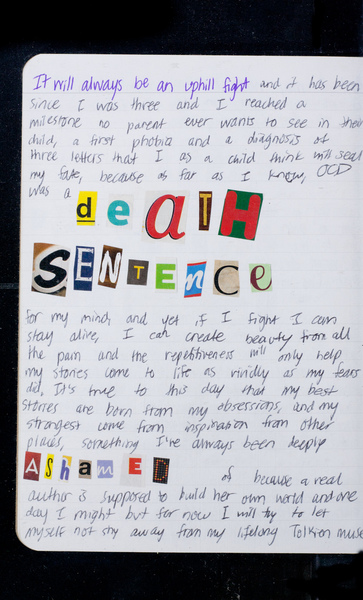 It will always be an uphill fight and it has been
since I was three and I reached a
milestone no parent ever wants to see in their
child, a first phobia and a diagnosis of
three letters that I as a child think will seal
my fate, because as far as I know, OCD
was a dEaTH
SENTENCe
for my mind, and yet if I fight I can
stay alive, I can create beauty from all
the pain and the repetitiveness will only help
my stories come to life as vividly as my tears
did, It's true to this day that my best
stories are born from my obsessions, and my
strangest come from inspiration from other
places, something I've always been deeply
AShamED of because a real
author is supposed to build her own world and one
day I might but for now I will try to let
myself not shy away from my lifelong Tolkien muse